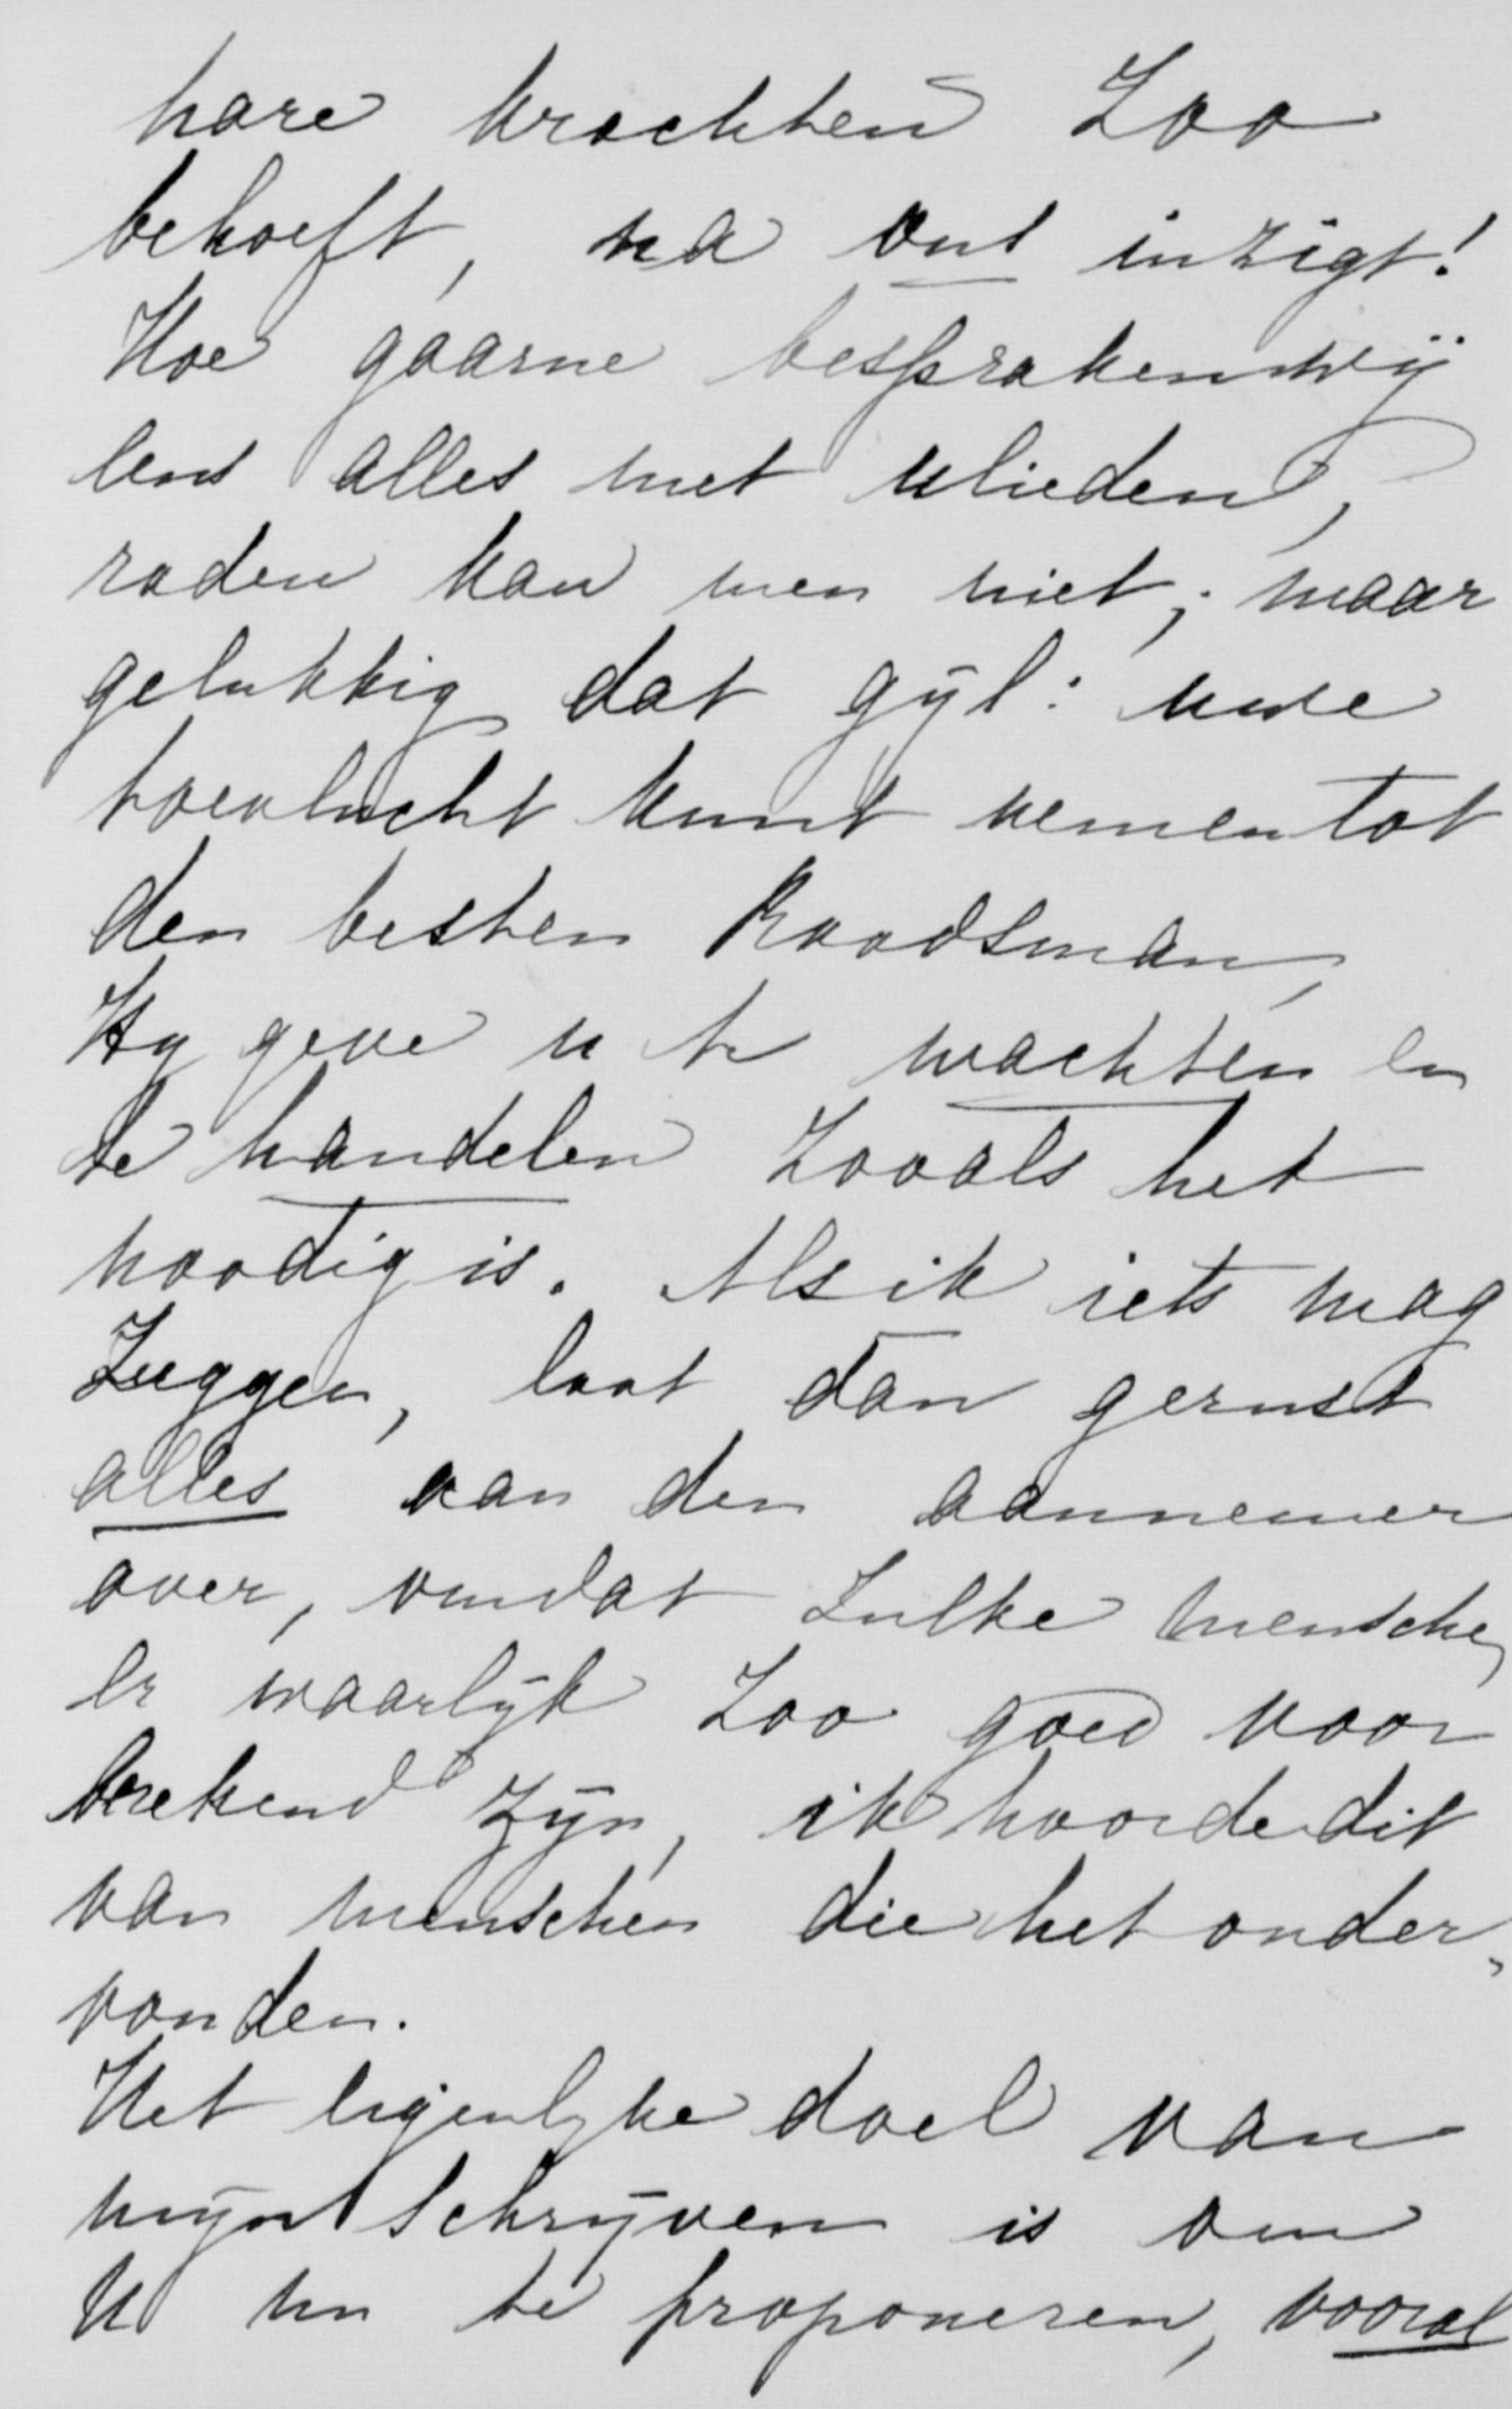 hare krachten zoo
behoeft, na ons inzigt!
Hoe gaarne bespraken wÿ
eens alles met ulieden,
raden kan men niet; maar
gelukkig dat gÿl: uwe
toevlucht kunt nemen tot
den besten Raadsman,
Hy geve u te wachten en
te handelen zooals het
noodig is. Als ik iets mag
zeggen, laat dan gerust
alles aan den aannemer
over, omdat zulke menschen
er waarlÿk zoo goed voor
berekend zÿn, ik hoorde dit
van menschen die het onder,
vonden.
Het eigenlyke doel van
mÿn schrÿven is om
U nu te proponeren, vooral